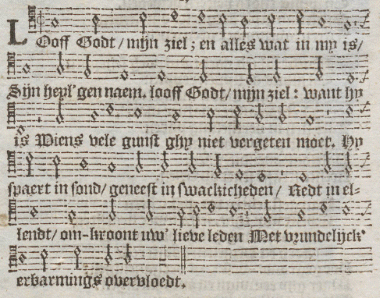 LOoff Godt / mijn ziel ; en alles wat in my is /
Sijn heyl'gen naem. looff Godt / mijn ziel : want hy
is Wiens vele gunst ghy niet vergeten moet. Hy
spaert in sond / geneest in swackicheden / Redt in el-
lendt / om-kroont uw' lieve leden Met vrundelijck'
erbarmings overvloedt.